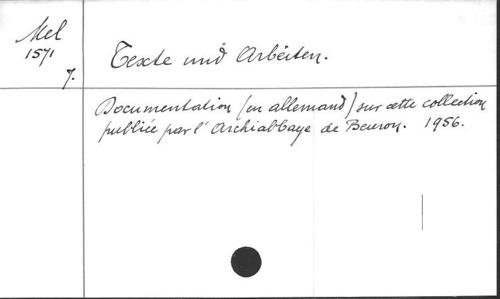 Mel
1571
7.
Texte und Arbeiten.
Documentation (en allemand) sur cette collection
publiée par l'Archiabbaye de Beuron. 1956.